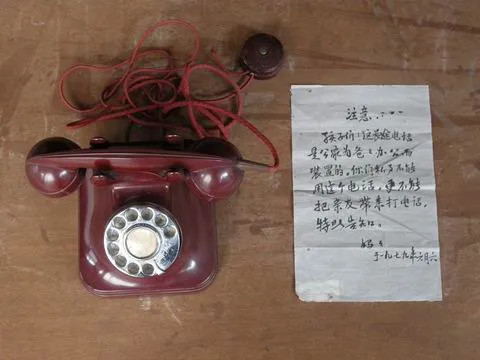 注意……
孩子们：这部电话
是公家为爸爸办公而
装置的，你们私事不能
用这个电话，更不能
把亲友带来打电话，
特此告知。
妈妈
于一九七九年元月六